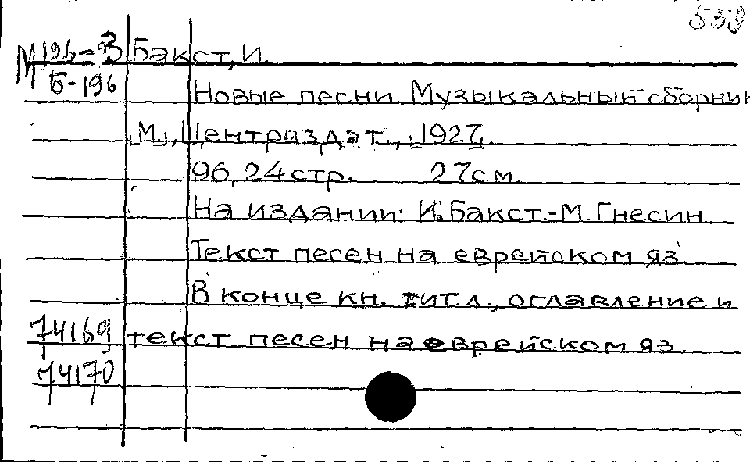 558
М 196-3 Бакст, И.
Б-196
Новые песни Музыкальный сборник
М., Центриздат, 1927.
96, 24 стр. 27 см.
На издании: И. Бакст.-М. Гнесин
Текст песен на еврейском яз.
В конце кн. тит. л., оглавление и
74169 текст песен на еврейском яз.
74170